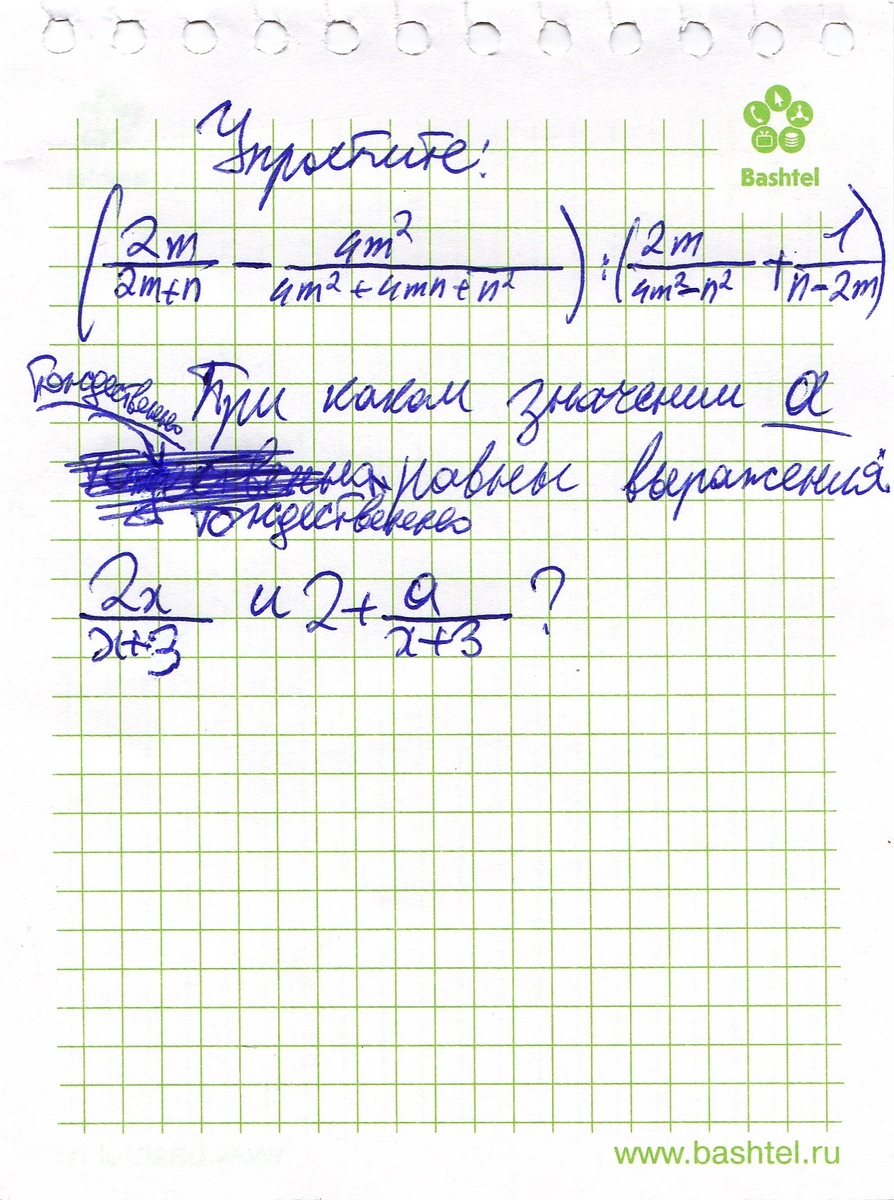 Bashtel
Упростите:
(2m/(2m+n) − 4m²/(4m²+4mn+n²)) : (2m/(4m²−n²) + 1/(n−2m))
Тождественно
При каком значении a
равны выражения
тождественно
2x/(x+3) и 2 + a/(x+3) ?
www.bashtel.ru